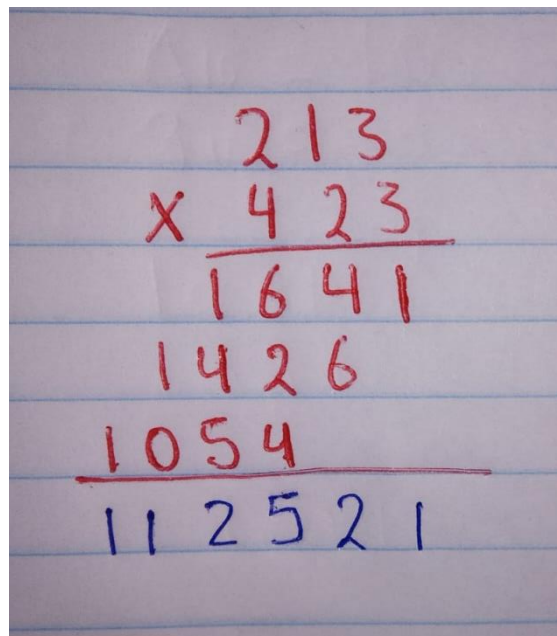 213
X 423
1641
1426
1054
112521